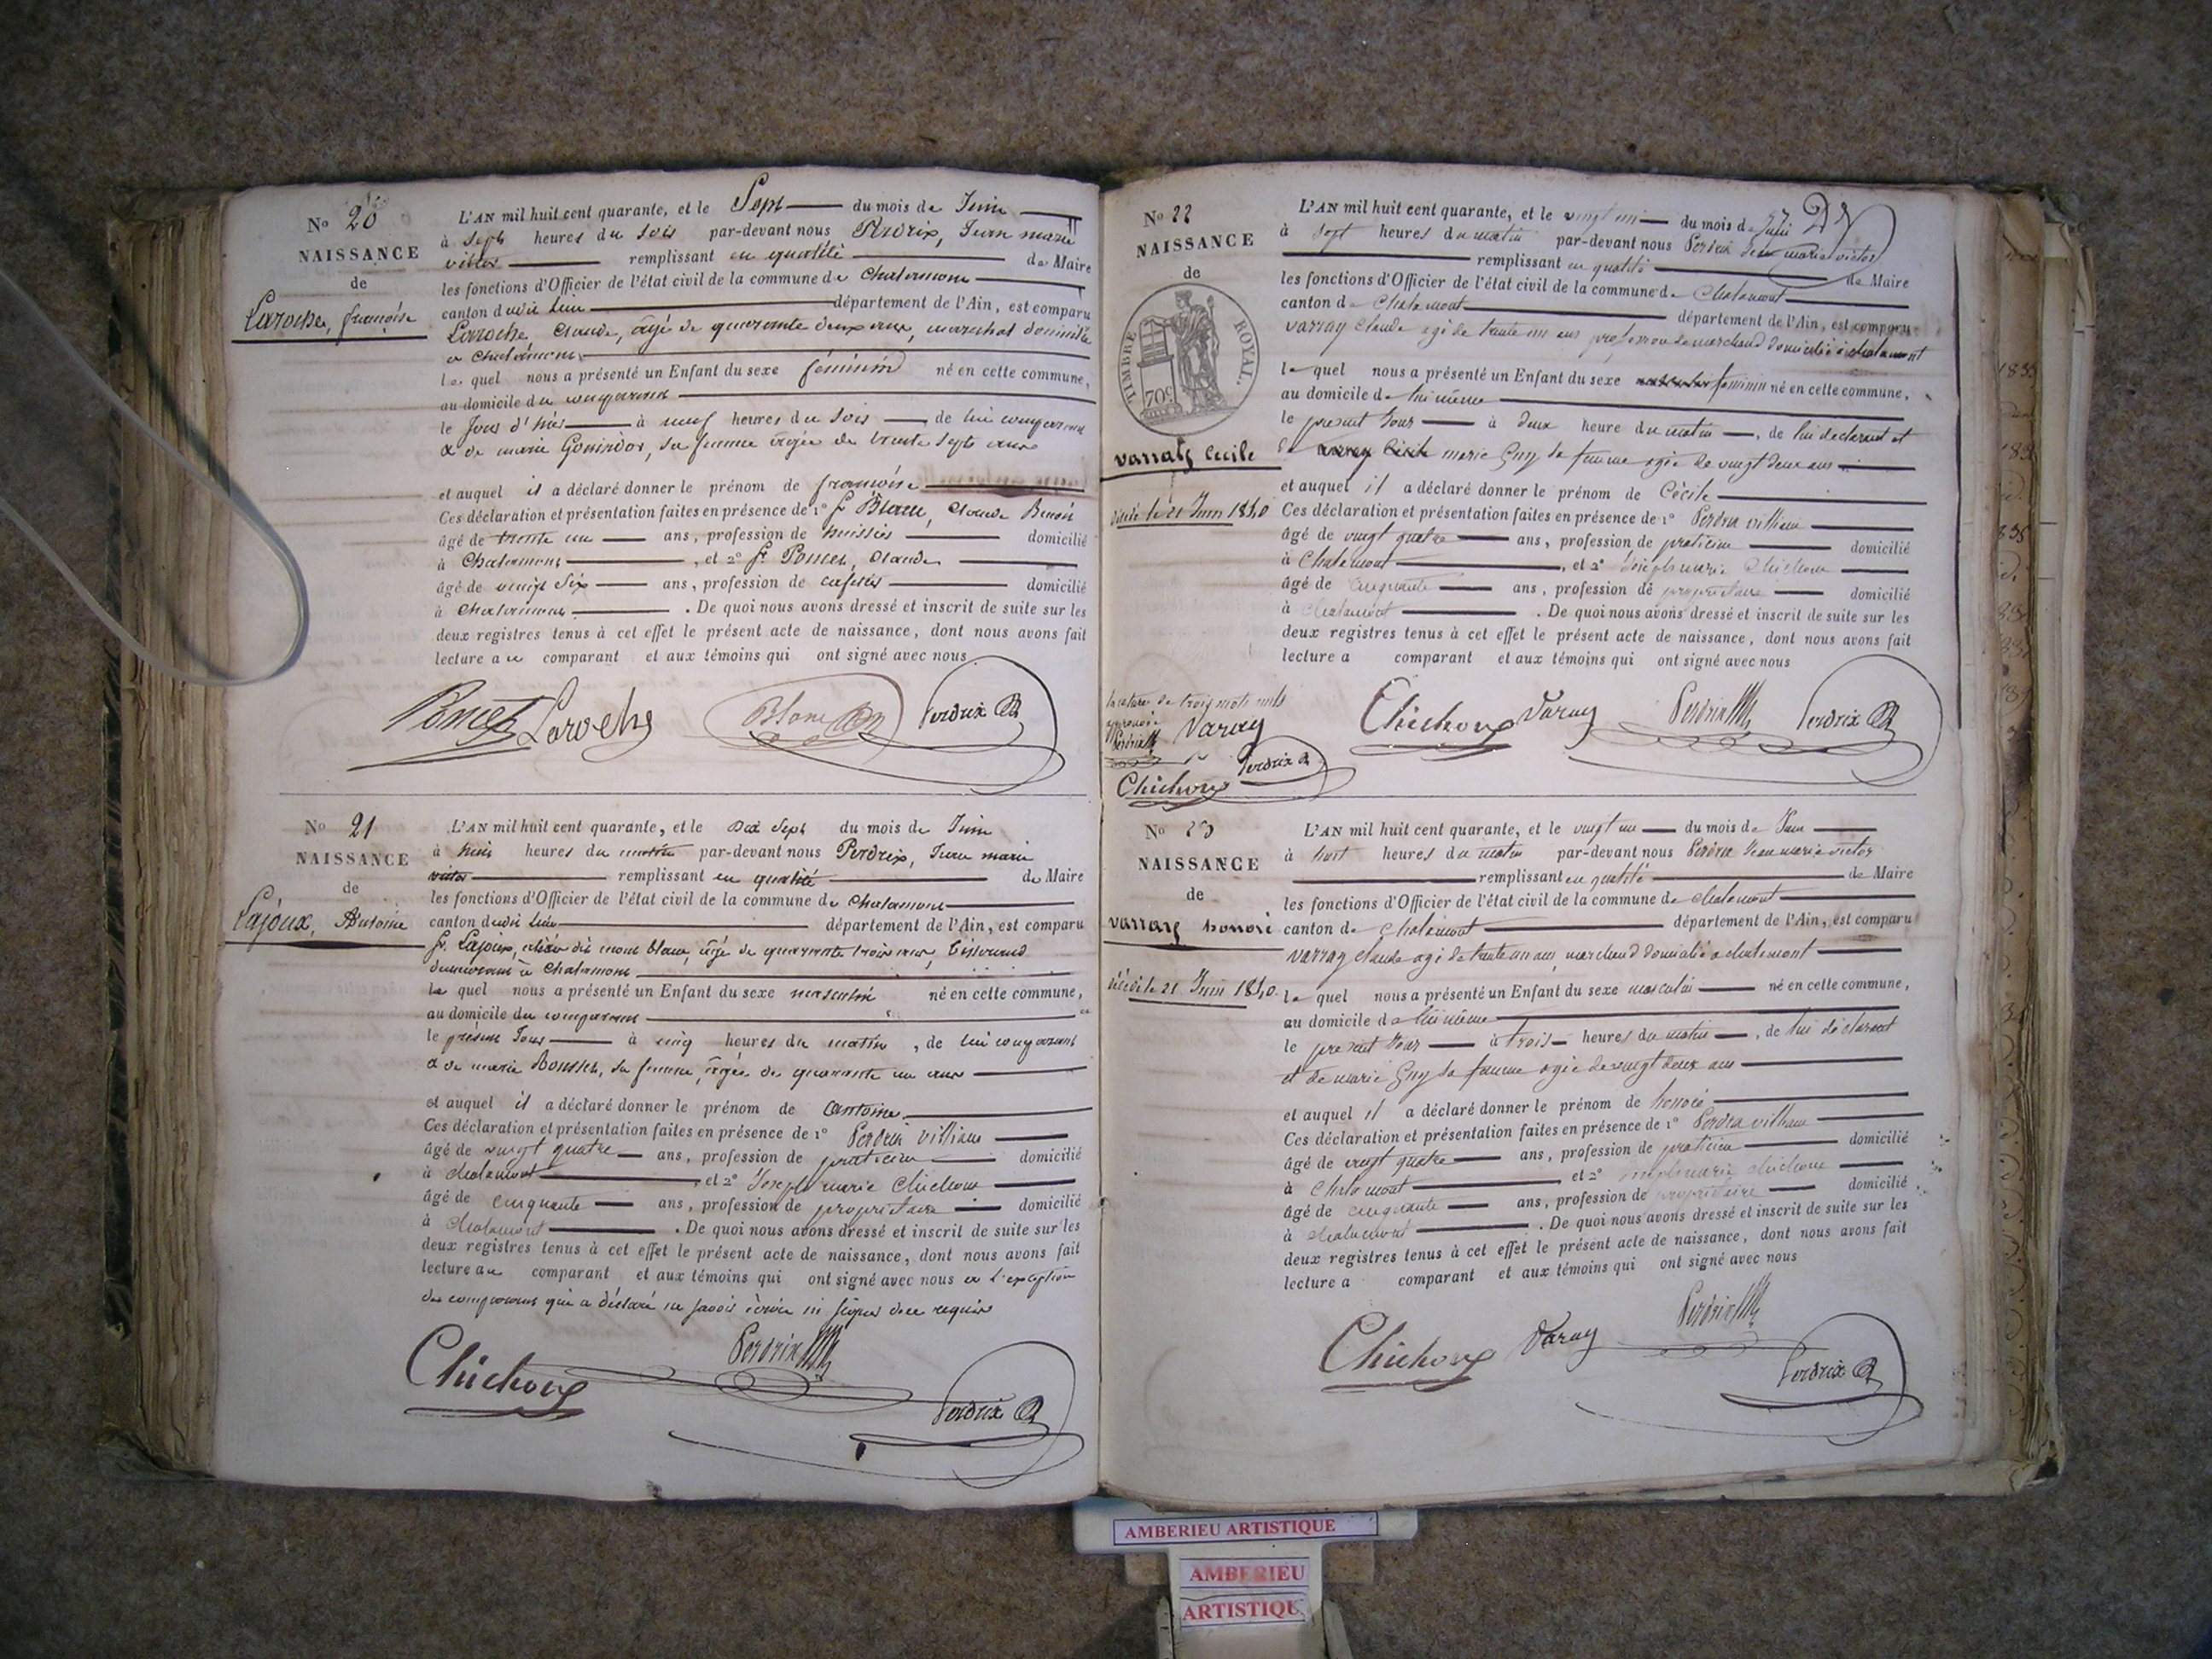 No 20
NAISSANCE
de
Laroche, françoise
L'AN mil huit cent quarante, et le Sept du mois de Juin
à sept heures du soir par-devant nous Perdrix, Jean marie
victor remplissant en qualité de Maire
les fonctions d'Officier de l'état civil de la commune de Chalamont
canton dudit lieu département de l'Ain, est comparu
Laroche, Claude, âgé de quarante deux ans, marechal domicilié
a Chalamont
le quel nous a présenté un Enfant du sexe féminin né en cette commune,
au domicile du comparant
le Jour d'hier à neuf heures du soir de lui comparant
& de marie sa femme âgée de trente sept ans
et auquel il a déclaré donner le prénom de françoise
Ces déclaration et présentation faites en présence de 1° Sr Blanc, Claude Benoit
âgé de trente un ans, profession de huissier domicilié
à Chalamont, et 2° Sr Poncet, Claude
âgé de vingt six ans, profession de cafetier domicilié
à Chalamont. De quoi nous avons dressé et inscrit de suite sur les
deux registres tenus à cet effet le présent acte de naissance, dont nous avons fait
lecture au comparant et aux témoins qui ont signé avec nous
Poncet Laroche Blanc Perdrix
No 21
NAISSANCE
de
Lajoux, Antoine
L'AN mil huit cent quarante, et le Dix Sept du mois de Juin
à huit heures du matin par-devant nous Perdrix, Jean marie
victor remplissant en qualité de Maire
les fonctions d'Officier de l'état civil de la commune de Chalamont
canton dudit lieu département de l'Ain, est comparu
Sr Lajoux, dit mont blanc, âgé de quarante trois ans, Tisserand
demeurant à Chalamont
le quel nous a présenté un Enfant du sexe masculin né en cette commune,
au domicile du comparant
le présent Jour à cinq heures du matin, de lui comparant
& de marie Bousset, sa femme, âgée de quarante un ans
et auquel il a déclaré donner le prénom de antoine
Ces déclaration et présentation faites en présence de 1° Perdrix villiam
âgé de vingt quatre ans, profession de praticien domicilié
à chalamont, et 2° Joseph marie Chichoux
âgé de cinquante ans, profession de propriétaire domicilié
à chalamont. De quoi nous avons dressé et inscrit de suite sur les
deux registres tenus à cet effet le présent acte de naissance, dont nous avons fait
lecture au comparant et aux témoins qui ont signé avec nous a l'exception
du comparant qui a déclaré ne savoir écrire ni signer de ce requis
Chichoux Perdrix Perdrix
No 22
NAISSANCE
de
TIMBRE ROYAL.
70c
varray Cecile
décédé le 21 Juin 1840
L'AN mil huit cent quarante, et le vingt un du mois de Juin
à sept heures du matin par-devant nous Perdrix Jean marie victor
remplissant en qualité de Maire
les fonctions d'Officier de l'état civil de la commune de Chalamont
canton de Chalamont département de l'Ain, est comparu
varray Claude agé de trente un ans profession de marchand domicilié à chalamont
le quel nous a présenté un Enfant du sexe feminin né en cette commune,
au domicile de lui même
le present Jour à deux heure du matin, de lui declarant et
de varray Cecile marie Guy sa femme agée de vingt deux ans
et auquel il a déclaré donner le prénom de Cécile
Ces déclaration et présentation faites en présence de 1° Perdrix villiam
âgé de vingt quatre ans, profession de praticien domicilié
à Chalamont, et 2° Joseph marie Chichoux
âgé de cinquante ans, profession de propriétaire domicilié
à chalamont. De quoi nous avons dressé et inscrit de suite sur les
deux registres tenus à cet effet le présent acte de naissance, dont nous avons fait
lecture a comparant et aux témoins qui ont signé avec nous
Chichoux Varay Perdrix Perdrix
la rature de trois mots nuls
approuvée
Perdrix Varay
Chichoux Perdrix
No 23
NAISSANCE
de
varray honoré
décédé le 21 Juin 1840.
L'AN mil huit cent quarante, et le vingt un du mois de Juin
à huit heures du matin par-devant nous Perdrix Jean marie victor
remplissant en qualité de Maire
les fonctions d'Officier de l'état civil de la commune de chalamont
canton de Chalamont département de l'Ain, est comparu
varray claude agé de trente un ans, marchand domicilié a chalamont
le quel nous a présenté un Enfant du sexe masculin né en cette commune,
au domicile de lui même
le present Jour à trois heures du matin, de lui déclarant
et de marie Guy sa femme agée de vingt deux ans
et auquel il a déclaré donner le prénom de honoré
Ces déclaration et présentation faites en présence de 1° Perdrix villiam
âgé de vingt quatre ans, profession de praticien domicilié
à Chalamont et 2° Joseph marie chichoux
âgé de cinquante ans, profession de propriétaire domicilié
à chalamont. De quoi nous avons dressé et inscrit de suite sur les
deux registres tenus à cet effet le présent acte de naissance, dont nous avons fait
lecture a comparant et aux témoins qui ont signé avec nous
Chichoux Varay Perdrix
Perdrix
AMBERIEU ARTISTIQUE
AMBERIEU
ARTISTIQUE